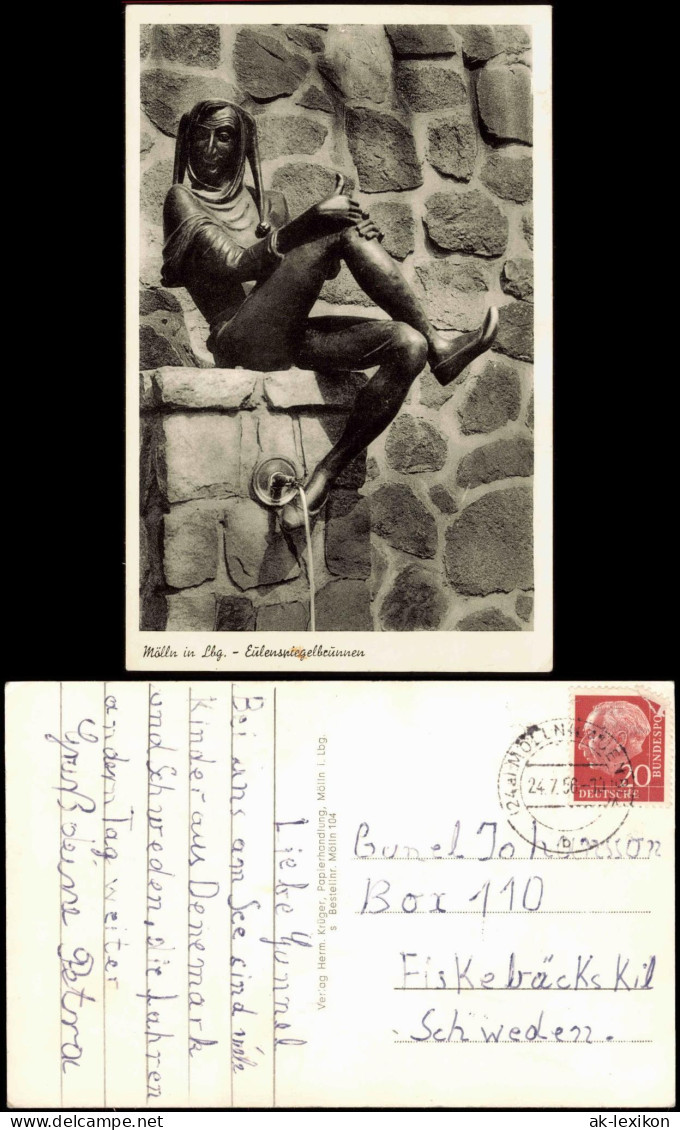 Mölln in Lbg. - Eulenspiegelbrunnen
Liebe Gunnel
Bei uns am See sind
Kinder aus Denemark
und Schweden, die fahren
andern Tag weiter
Gruß Deine Petra
Verlag Herm. Krüger, Papierhandlung, Mölln i. Lbg.
s Bestellnr. Mölln 104
24.7.56
20
DEUTSCHE
BUNDESPOST
Gunel Johansson
Box 110
Fiskebäckskil
Schweden.
ak-lexikon